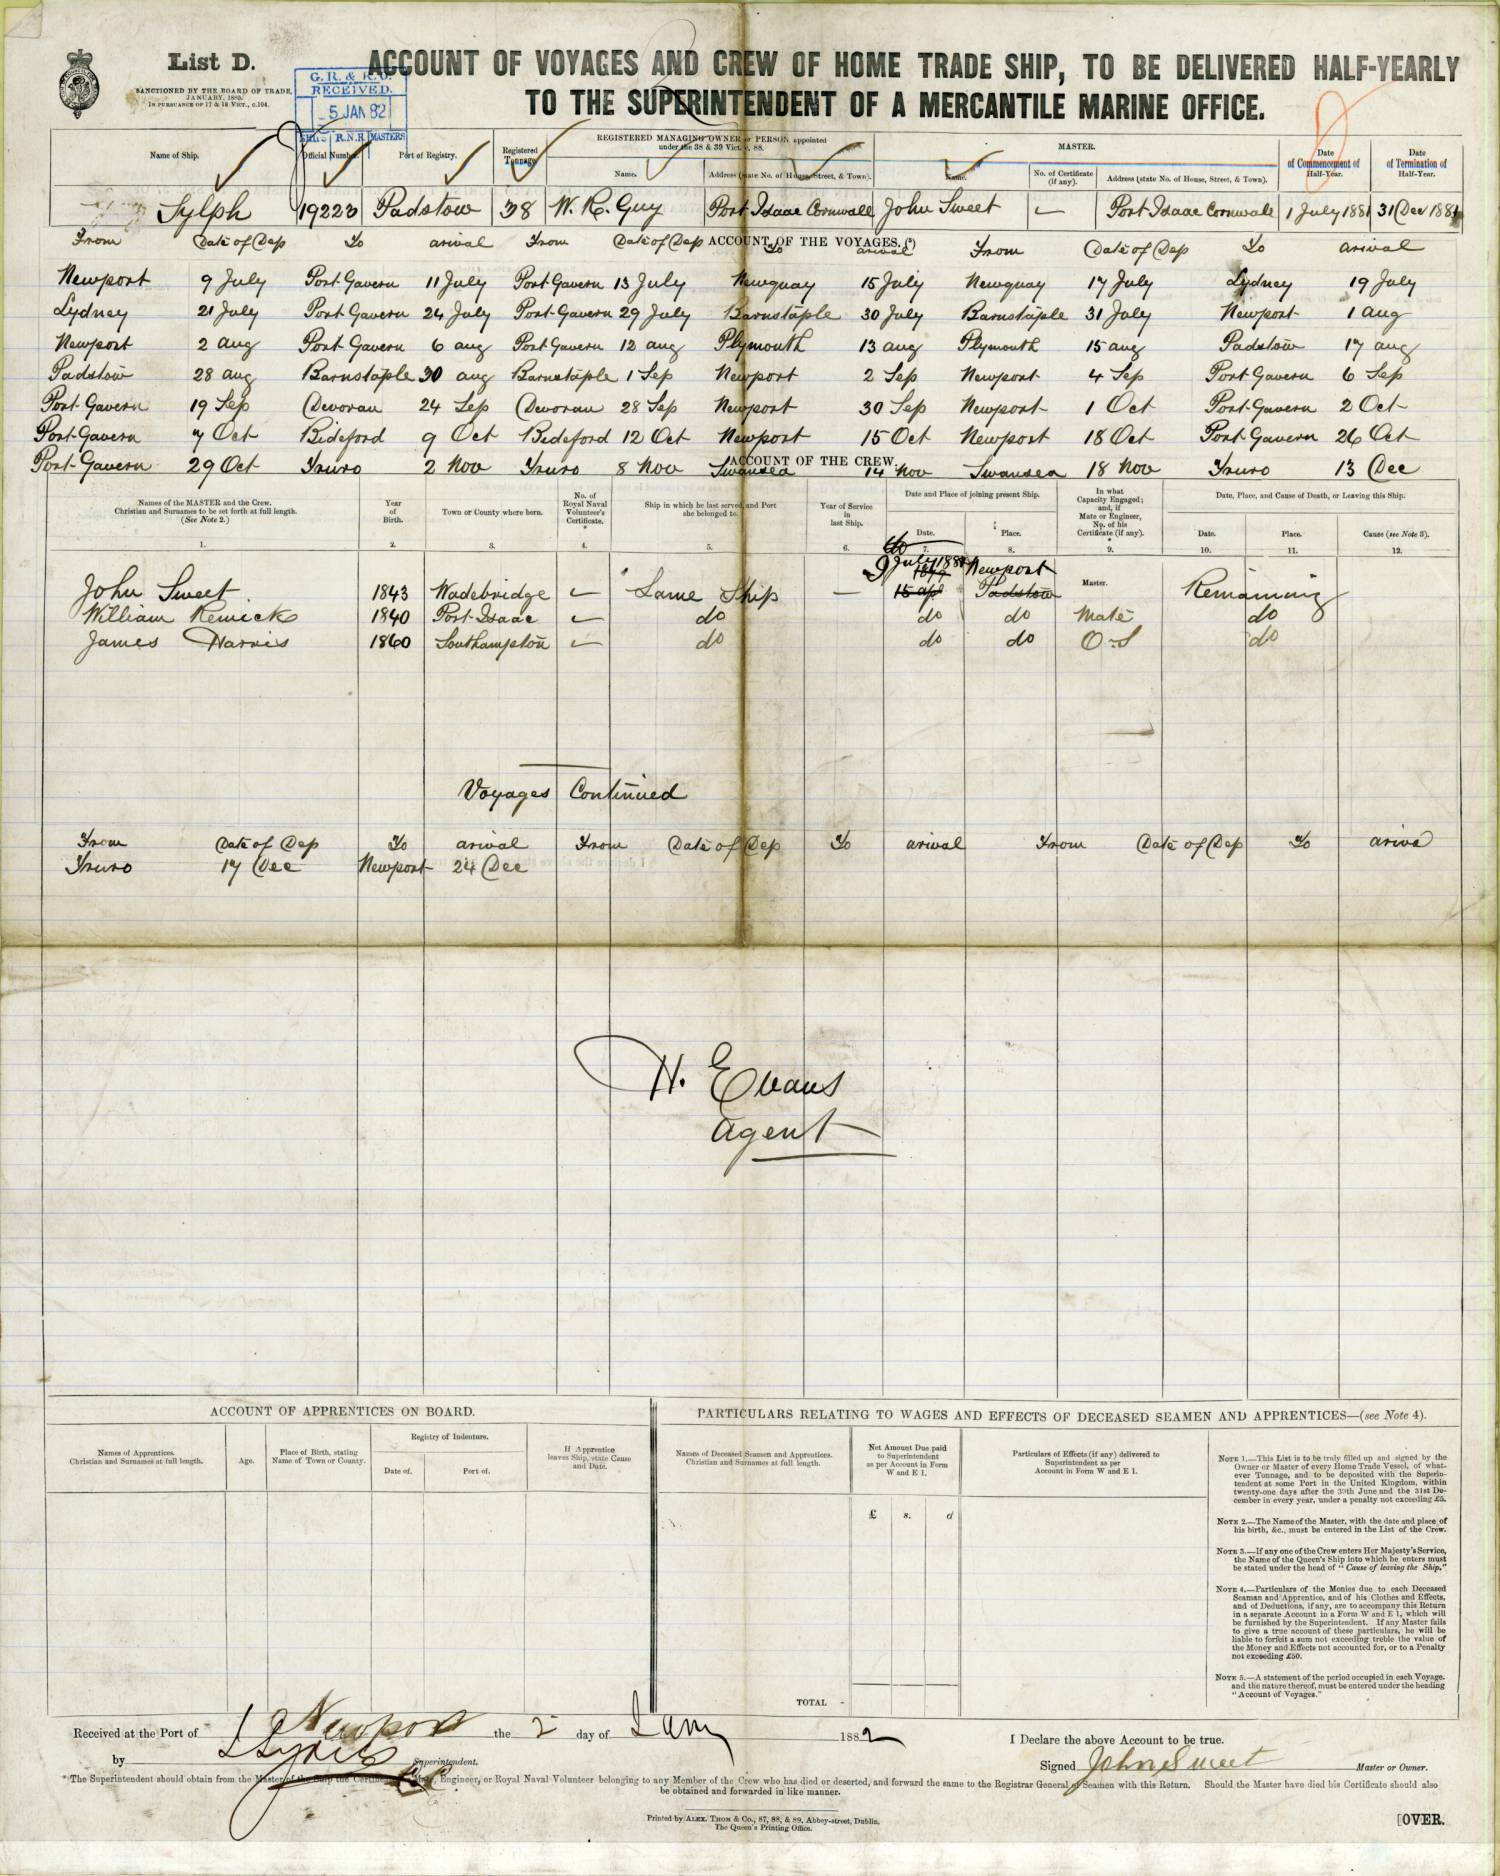 List D.
SANCTIONED BY THE BOARD OF TRADE,
JANUARY, 1880.
IN PURSUANCE OF 17 & 18 VICT., c.104.
ACCOUNT OF VOYAGES AND CREW OF HOME TRADE SHIP, TO BE DELIVERED HALF-YEARLY
TO THE SUPERINTENDENT OF A MERCANTILE MARINE OFFICE.
G. R. & R. O.
RECEIVED.
5 JAN 82
SHIPS R.N.R MASTERS
Name of Ship. Official Number. Port of Registry. Registered Tonnage. REGISTERED MANAGING OWNER or PERSON appointed under the 38 & 39 Vict. c. 88. MASTER. Date of Commencement of Half-Year. Date of Termination of Half-Year.
Name. Address (state No. of House, Street, & Town). Name. No. of Certificate (if any). Address (state No. of House, Street, & Town).
Sylph 19223 Padstow 38 W. R. Guy Port Isaac Cornwall John Sweet Port Isaac Cornwall 1 July 1881 31 Dec 1881
ACCOUNT OF THE VOYAGES. (*)
From Date of Dep To arival From Date of Dep To arival From Date of Dep To arival
Newport 9 July Port Gavern 11 July Port Gavern 13 July Newquay 15 July Newquay 17 July Lydney 19 July
Lydney 21 July Port Gavern 24 July Port Gavern 29 July Barnstaple 30 July Barnstaple 31 July Newport 1 aug
Newport 2 aug Port Gavern 6 aug Port Gavern 12 aug Plymouth 13 aug Plymouth 15 aug Padstow 17 aug
Padstow 28 aug Barnstaple 30 aug Barnstaple 1 Sep Newport 2 Sep Newport 4 Sep Port Gavern 6 Sep
Port Gavern 19 Sep Devoran 24 Sep Devoran 28 Sep Newport 30 Sep Newport 1 Oct Port Gavern 2 Oct
Port Gavern 7 Oct Bideford 9 Oct Bideford 12 Oct Newport 15 Oct Newport 18 Oct Port Gavern 26 Oct
Port Gavern 29 Oct Truro 2 Nov Truro 8 Nov Swansea 14 Nov Swansea 18 Nov Truro 13 Dec
ACCOUNT OF THE CREW.
Names of the MASTER and the Crew. Christian and Surnames to be set forth at full length. (See Note 2.) Year of Birth. Town or County where born. No. of Royal Naval Volunteer's Certificate. * Ship in which he last served, and Port she belonged to. Year of Service in last Ship. Date and Place of joining present Ship. In what Capacity Engaged; and, if Mate or Engineer, No. of his Certificate (if any). * Date, Place, and Cause of Death, or Leaving this Ship.
Date. Place. Date. Place. Cause (see Note 3).
1. 2. 3. 4. 5. 6. 7. 8. 9. 10. 11. 12.
9 July 1881 Newport
John Sweet 1843 Wadebridge Same Ship 15 apl Padstow Master. Remaining
William Remick 1840 Port Isaac do do do Mate do
James Harris 1860 Southampton do do do O.S do
Voyages Continued
From Date of Dep To arival From Date of Dep To arival From Date of Dep To ariva
Truro 17 Dec Newport 24 Dec
H. Evans
agent
ACCOUNT OF APPRENTICES ON BOARD.
Names of Apprentices. Christian and Surnames at full length. Age. Place of Birth, stating Name of Town or County. Registry of Indenture. Date of. Port of. If Apprentice leaves Ship, state Cause and Date.
PARTICULARS RELATING TO WAGES AND EFFECTS OF DECEASED SEAMEN AND APPRENTICES—(see Note 4).
Names of Deceased Seamen and Apprentices. Christian and Surnames at full length. Net Amount Due paid to Superintendent as per Account in Form W and E 1. Particulars of Effects (if any) delivered to Superintendent as per Account in Form W and E 1.
£ s. d
TOTAL
NOTE 1.—This List is to be truly filled up and signed by the
Owner or Master of every Home Trade Vessel, of what-
ever Tonnage, and to be deposited with the Superin-
tendent at some Port in the United Kingdom, within
twenty-one days after the 30th June and the 31st De-
cember in every year, under a penalty not exceeding £5.
NOTE 2.—The Name of the Master, with the date and place of
his birth, &c., must be entered in the List of the Crew.
NOTE 3.—If any one of the Crew enters Her Majesty's Service,
the Name of the Queen's Ship into which he enters must
be stated under the head of "Cause of leaving the Ship."
NOTE 4.—Particulars of the Monies due to each Deceased
Seaman and Apprentice, and of his Clothes and Effects,
and of Deductions, if any, are to accompany this Return
in a separate Account in a Form W and E 1, which will
be furnished by the Superintendent. If any Master fails
to give a true account of these particulars, he will be
liable to forfeit a sum not exceeding treble the value of
the Money and Effects not accounted for, or to a Penalty
not exceeding £50.
NOTE 5.—A statement of the period occupied in each Voyage,
and the nature thereof, must be entered under the heading
"Account of Voyages."
Received at the Port of Newport the 2 day of Jany 1882
I Declare the above Account to be true.
by Superintendent.
Signed John Sweet Master or Owner.
* The Superintendent should obtain from the Master of the Ship the Certificate of Engineer, or Royal Naval Volunteer belonging to any Member of the Crew who has died or deserted, and forward the same to the Registrar General of Seamen with this Return. Should the Master have died his Certificate should also
be obtained and forwarded in like manner.
Printed by ALEX. THOM & Co., 87, 88, & 89, Abbey-street, Dublin,
The Queen's Printing Office.
[OVER.